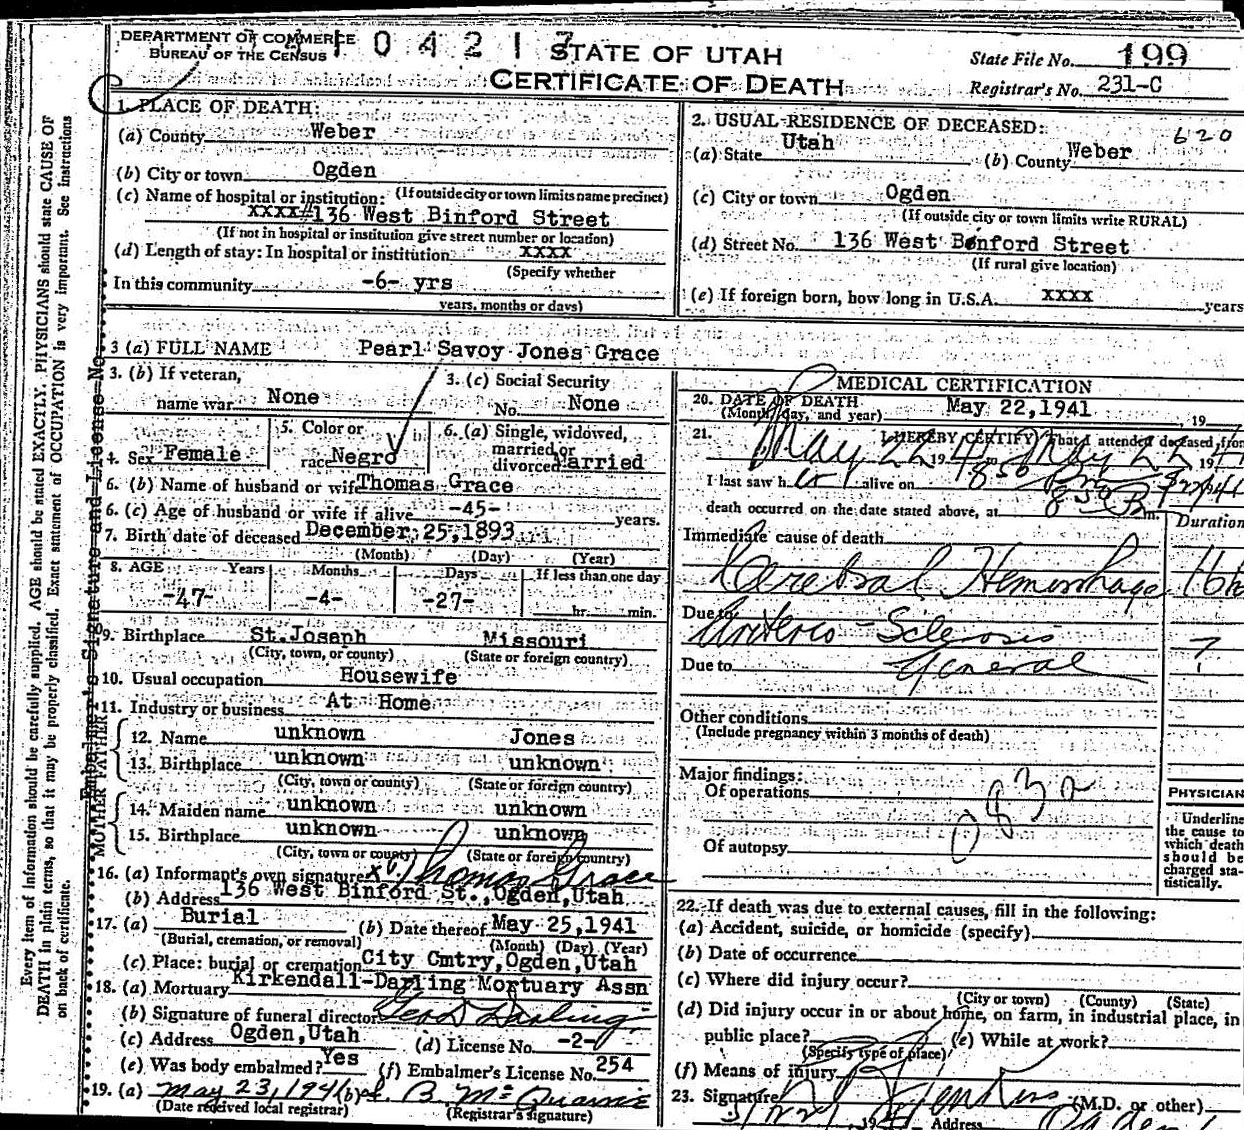 DEPARTMENT OF COMMERCE
BUREAU OF THE CENSUS
104217
STATE OF UTAH
CERTIFICATE OF DEATH
State File No. 199
Registrar's No. 231-C
1. PLACE OF DEATH:
(a) County Weber
(b) City or town Ogden
(c) Name of hospital or institution: (If outside city or town limits name precinct)
xxxx#136 West Binford Street
(If not in hospital or institution give street number or location)
(d) Length of stay: In hospital or institution xxxx
(Specify whether
In this community -6- yrs
years, months or days)
2. USUAL RESIDENCE OF DECEASED: 620
(a) State Utah (b) County Weber
(c) City or town Ogden
(If outside city or town limits write RURAL)
(d) Street No. 136 West Binford Street
(If rural give location)
(e) If foreign born, how long in U.S.A. xxxx years
3 (a) FULL NAME Pearl Savoy Jones Grace
3. (b) If veteran, name war None
3. (c) Social Security No. None
4. Sex Female
5. Color or race Negro
6. (a) Single, widowed, married or divorced Married
6. (b) Name of husband or wife Thomas Grace
6. (c) Age of husband or wife if alive -45- years.
7. Birth date of deceased December 25,1893
(Month) (Day) (Year)
8. AGE Years Months Days If less than one day
-47- -4- -27- hr. min.
9. Birthplace St.Joseph Missouri
(City, town, or county) (State or foreign country)
10. Usual occupation Housewife
11. Industry or business At Home
FATHER
12. Name unknown Jones
13. Birthplace unknown unknown
(City, town or county) (State or foreign country)
MOTHER
14. Maiden name unknown unknown
15. Birthplace unknown unknown
(City, town or county) (State or foreign country)
16. (a) Informant's own signature x Thomas Grace
(b) Address 136 West Binford St.,Ogden,Utah
17. (a) Burial (b) Date thereof May 25,1941
(Burial, cremation, or removal) (Month) (Day) (Year)
(c) Place: burial or cremation City Cmtry,Ogden,Utah
18. (a) Mortuary Kirkendall-Darling Mortuary Assn
(b) Signature of funeral director Geo D Darling
(c) Address Ogden,Utah (d) License No. -2-
(e) Was body embalmed? Yes (f) Embalmer's License No. 254
19. (a) May 23, 1941 (b)
(Date received local registrar) (Registrar's signature)
MEDICAL CERTIFICATION
20. DATE OF DEATH
(Month, day, and year) May 22,1941, 19
21. I HEREBY CERTIFY, That I attended deceased from
May 22 1941 May 22 194
I last saw her alive on
death occurred on the date stated above, at 850 P m.
Duration
Immediate cause of death
Cerebral Hemorrhage
Due to Arterio-Sclerosis ?
Due to General
Other conditions
(Include pregnancy within 3 months of death)
Major findings:
Of operations
Of autopsy
PHYSICIAN
Underline
the cause to
which death
should be
charged sta-
tistically.
22. If death was due to external causes, fill in the following:
(a) Accident, suicide, or homicide (specify)
(b) Date of occurrence
(c) Where did injury occur?
(City or town) (County) (State)
(d) Did injury occur in or about home, on farm, in industrial place, in
public place? (e) While at work?
(Specify type of place)
(f) Means of injury
23. Signature (M.D. or other)
Address
Every item of information should be carefully supplied. AGE should be stated EXACTLY. PHYSICIANS should state CAUSE OF
DEATH in plain terms, so that it may be properly classified. Exact statement of OCCUPATION is very important. See instructions
on back of certificate.
Embalmer's Signature and License No.